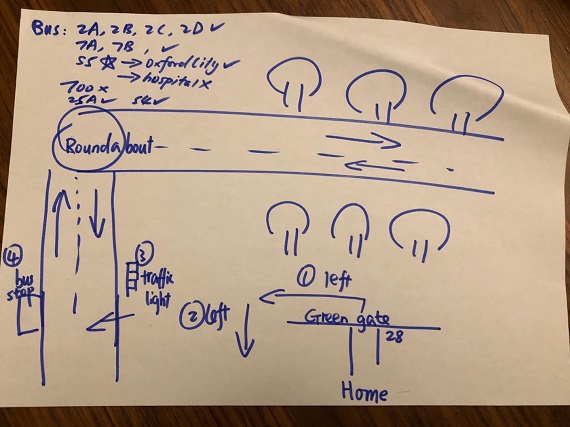 Bus: 2A, 2B, 2C, 2D ✓
7A, 7B, ✓
S5 ☆ → Oxford City ✓
→ hospital X
700 X
25A ✓ S4 ✓
Roundabout
④
bus
stop
③
traffic
light
① left
② left
Green gate
28
Home